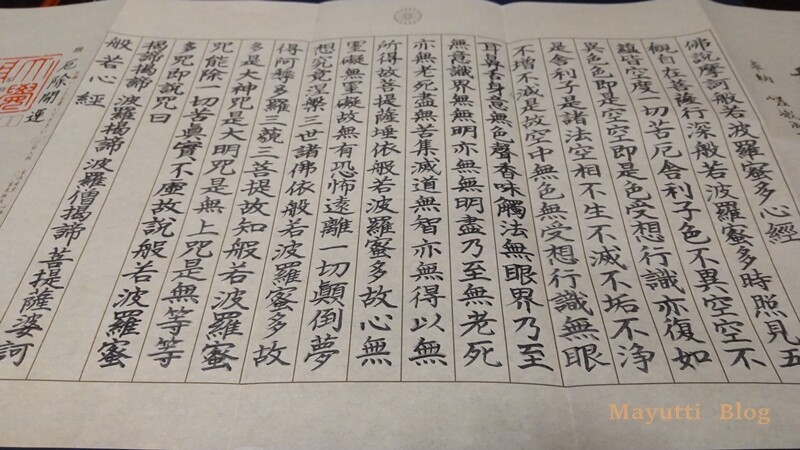 佛説摩訶般若波羅蜜多心經
觀自在菩薩行深般若波羅蜜多時照見五
蘊皆空度一切苦厄舎利子色不異空空不
異色色即是空空即是色受想行識亦復如
是舎利子是諸法空相不生不滅不垢不浄
不增不減是故空中無色無受想行識無眼
耳鼻舌身意無色聲香味觸法無眼界乃至
無意識界無無明亦無無明盡乃至無老死
亦無老死盡無苦集滅道無智亦無得以無
所得故菩提薩埵依般若波羅蜜多故心無
罣礙無罣礙故無有恐怖遠離一切顛倒夢
想究竟涅槃三世諸佛依般若波羅蜜多故
得阿耨多羅三藐三菩提故知般若波羅蜜
多是大神咒是大明咒是無上咒是無等等
咒能除一切苦真實不虚故説般若波羅蜜
多咒即説咒曰
揭諦揭諦 波羅揭諦 波羅僧揭諦 菩提薩婆訶
般若心經
厄除開運
Mayutti Blog